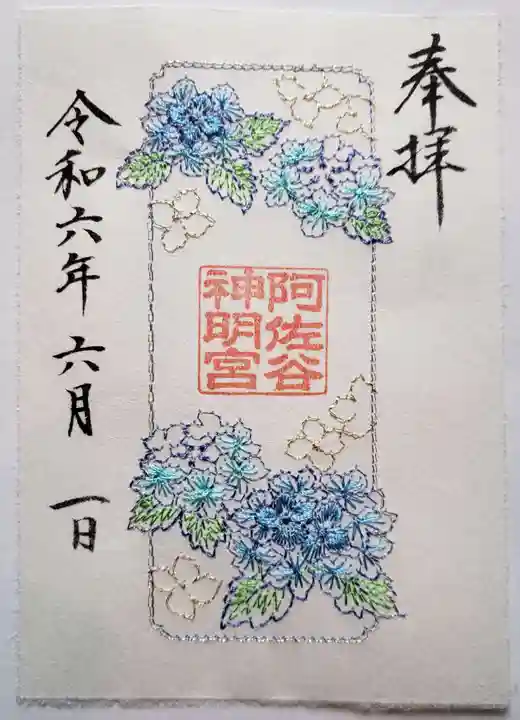 奉拝
阿佐谷
神明宮
令和六年六月一日